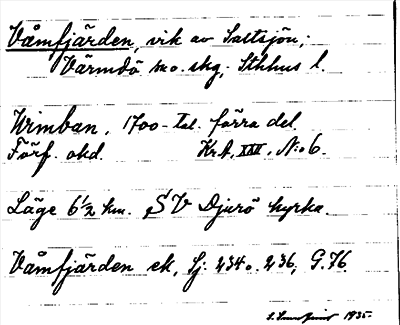 Våmfjärden, vik av Saltsjön;
Värmdö sko. skg, Sthlms l.
Wimban, 1700-tal. förra del.
Förf. okd. Kr.A, XXV, N:o 6.
Läge 6½ km. SV Djurö kyrka.
Våmfjärden ek, Sj: 234 o. 236, G.76.
1935